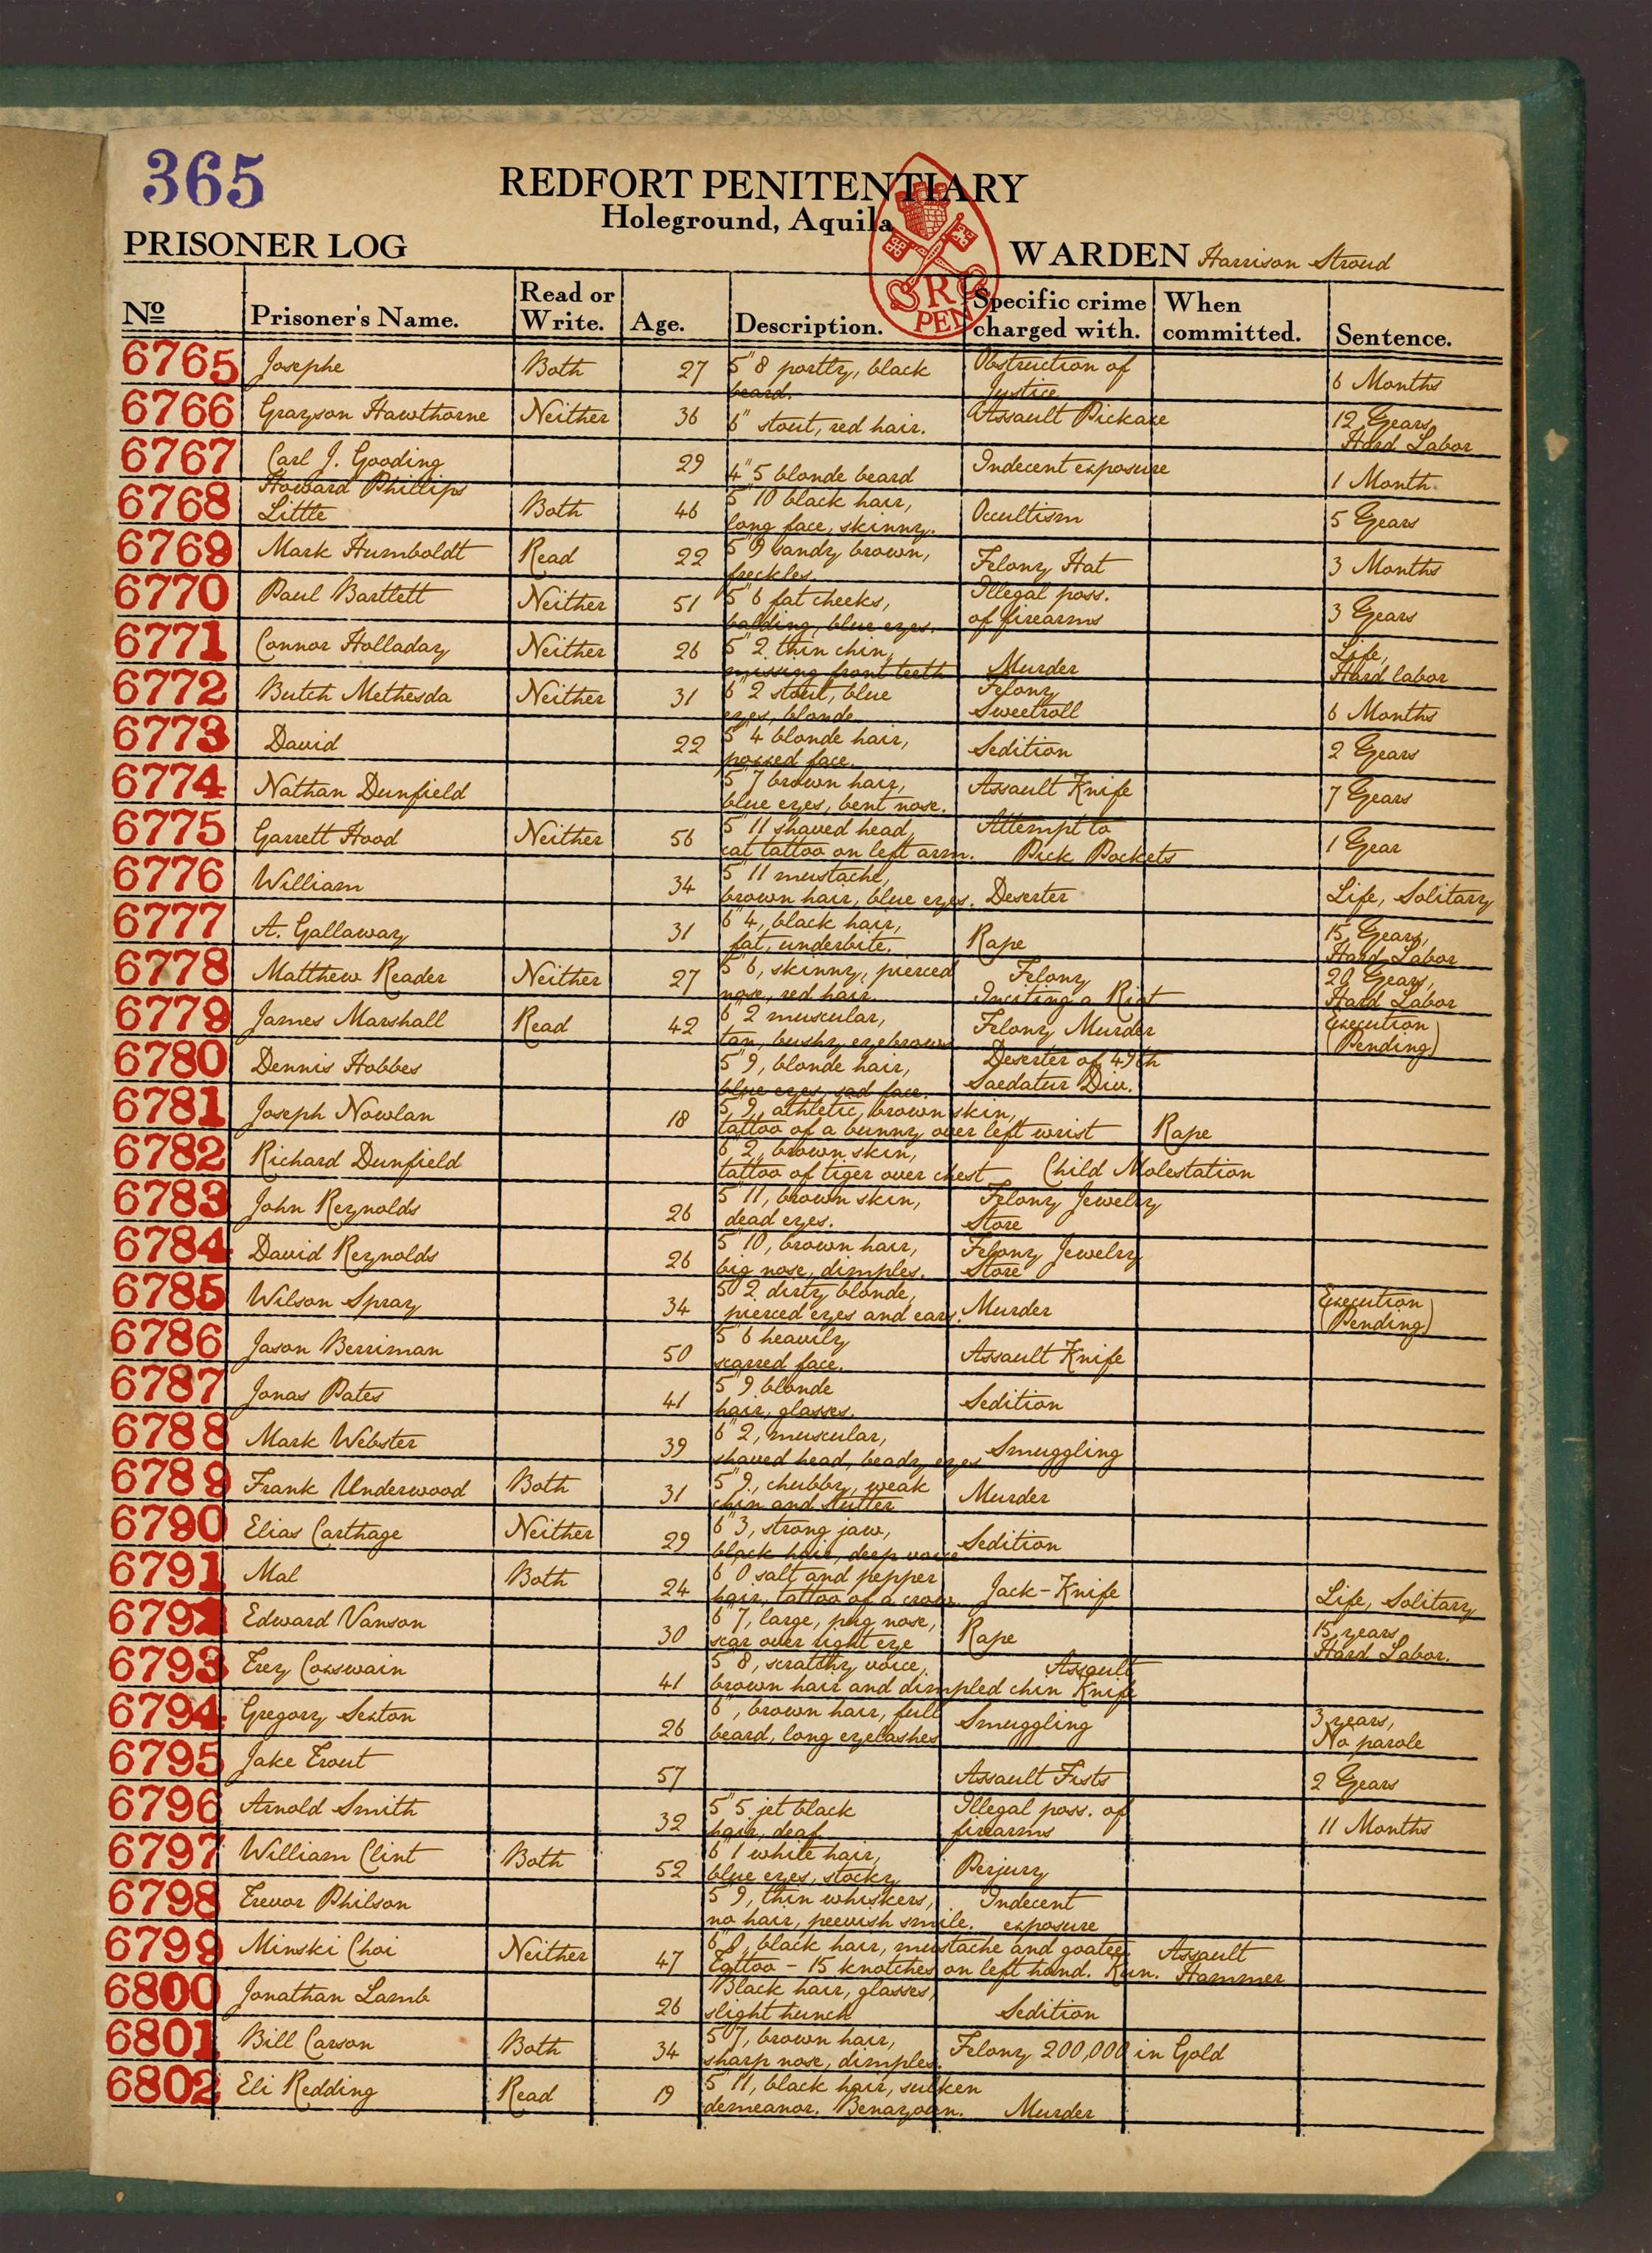 365
REDFORT PENITENTIARY
Holeground, Aquila
PRISONER LOG
WARDEN Harrison Stroud
R
PEN
Nº Prisoner's Name. Read or Write. Age. Description. Specific crime charged with. When committed. Sentence.
6765 Josephe Both 27 5"8 portly, black beard. Obstruction of Justice 6 Months
6766 Grayson Hawthorne Neither 36 6" stout, red hair. Assault Pickaxe 12 Years, Hard Labor
6767 Carl J. Gooding 29 4"5 blonde beard Indecent exposure 1 Month
6768 Howard Phillips Little Both 46 5"10 black hair, long face, skinny. Occultism 5 Years
6769 Mark Humboldt Read 22 5"9 sandy brown, freckles. Felony Hat 3 Months
6770 Paul Bartlett Neither 51 5"6 fat cheeks, balding, blue eyes. Illegal poss. of firearms 3 Years
6771 Connor Holladay Neither 26 5"2 thin chin, missing front teeth Murder Life, Hard labor
6772 Butch Methesda Neither 31 6"2 stout, blue eyes, blonde Felony Sweetroll 6 Months
6773 David 22 5"4 blonde hair, poxxed face. Sedition 2 Years
6774 Nathan Dunfield 5"7 brown hair, blue eyes, bent nose. Assault Knife 7 Years
6775 Garrett Hood Neither 56 5"11 shaved head, cat tattoo on left arm. Attempt to Pick Pockets 1 Year
6776 William 34 5"11 mustache, brown hair, blue eyes. Deserter Life, Solitary
6777 A. Gallaway 31 6"4, black hair, fat, underbite. Rape 15 Years, Hard Labor
6778 Matthew Reader Neither 27 5"6, skinny, pierced nose, red hair. Felony Inciting a Riot 20 Years, Hard Labor
6779 James Marshall Read 42 6"2 muscular, tan, bushy eyebrows Felony Murder Execution (Pending)
6780 Dennis Hobbes 5"9, blonde hair, blue eyes, sad face. Deserter of 49th Saedatur Div.
6781 Joseph Nowlan 18 5,9, athletic, brown skin, tattoo of a bunny over left wrist Rape
6782 Richard Dunfield 6"2, brown skin, tattoo of tiger over chest Child Molestation
6783 John Reynolds 26 5"11, brown skin, dead eyes. Felony Jewelry Store
6784 David Reynolds 26 5"10, brown hair, big nose, dimples. Felony Jewelry Store
6785 Wilson Spray 34 5"2 dirty blonde, pierced eyes and ears. Murder Execution (Pending)
6786 Jason Berriman 50 5"6 heavily scarred face. Assault Knife
6787 Jonas Pates 41 5"9 blonde hair, glasses. Sedition
6788 Mark Webster 39 6"2, muscular, shaved head, beady eyes Smuggling
6789 Frank Underwood Both 31 5"9, chubby, weak chin and stutter Murder
6790 Elias Carthage Neither 29 6"3, strong jaw, black hair, deep voice Sedition
6791 Mal Both 24 6"0 salt and pepper hair, tattoo of a crow. Jack-Knife Life, Solitary
6792 Edward Vanson 30 6"7, large, pug nose, scar over right eye Rape 15 years, Hard Labor.
6793 Trey Coxswain 41 5"8, scratchy voice, brown hair and dimpled chin Assault Knife
6794 Gregory Sexton 26 6", brown hair, full beard, long eyelashes Smuggling 3 years, No parole
6795 Jake Trout 57 Assault Fists 2 Years
6796 Arnold Smith 32 5"5 jet black hair, deaf Illegal poss. of firearms 11 Months
6797 William Clint Both 52 6"1 white hair, blue eyes, stocky Perjury
6798 Trevor Philson 5"9, thin whiskers, no hair, peevish smile. Indecent exposure
6799 Minski Choi Neither 47 6"0, black hair, mustache and goatee. Tattoo - 15 knotches on left hand. Run. Assault Hammer
6800 Jonathan Lamb 26 Black hair, glasses, slight hunch Sedition
6801 Bill Carson Both 34 5"7, brown hair, sharp nose, dimples. Felony 200,000 in Gold
6802 Eli Redding Read 19 5"11, black hair, sulken demeanor. Murder